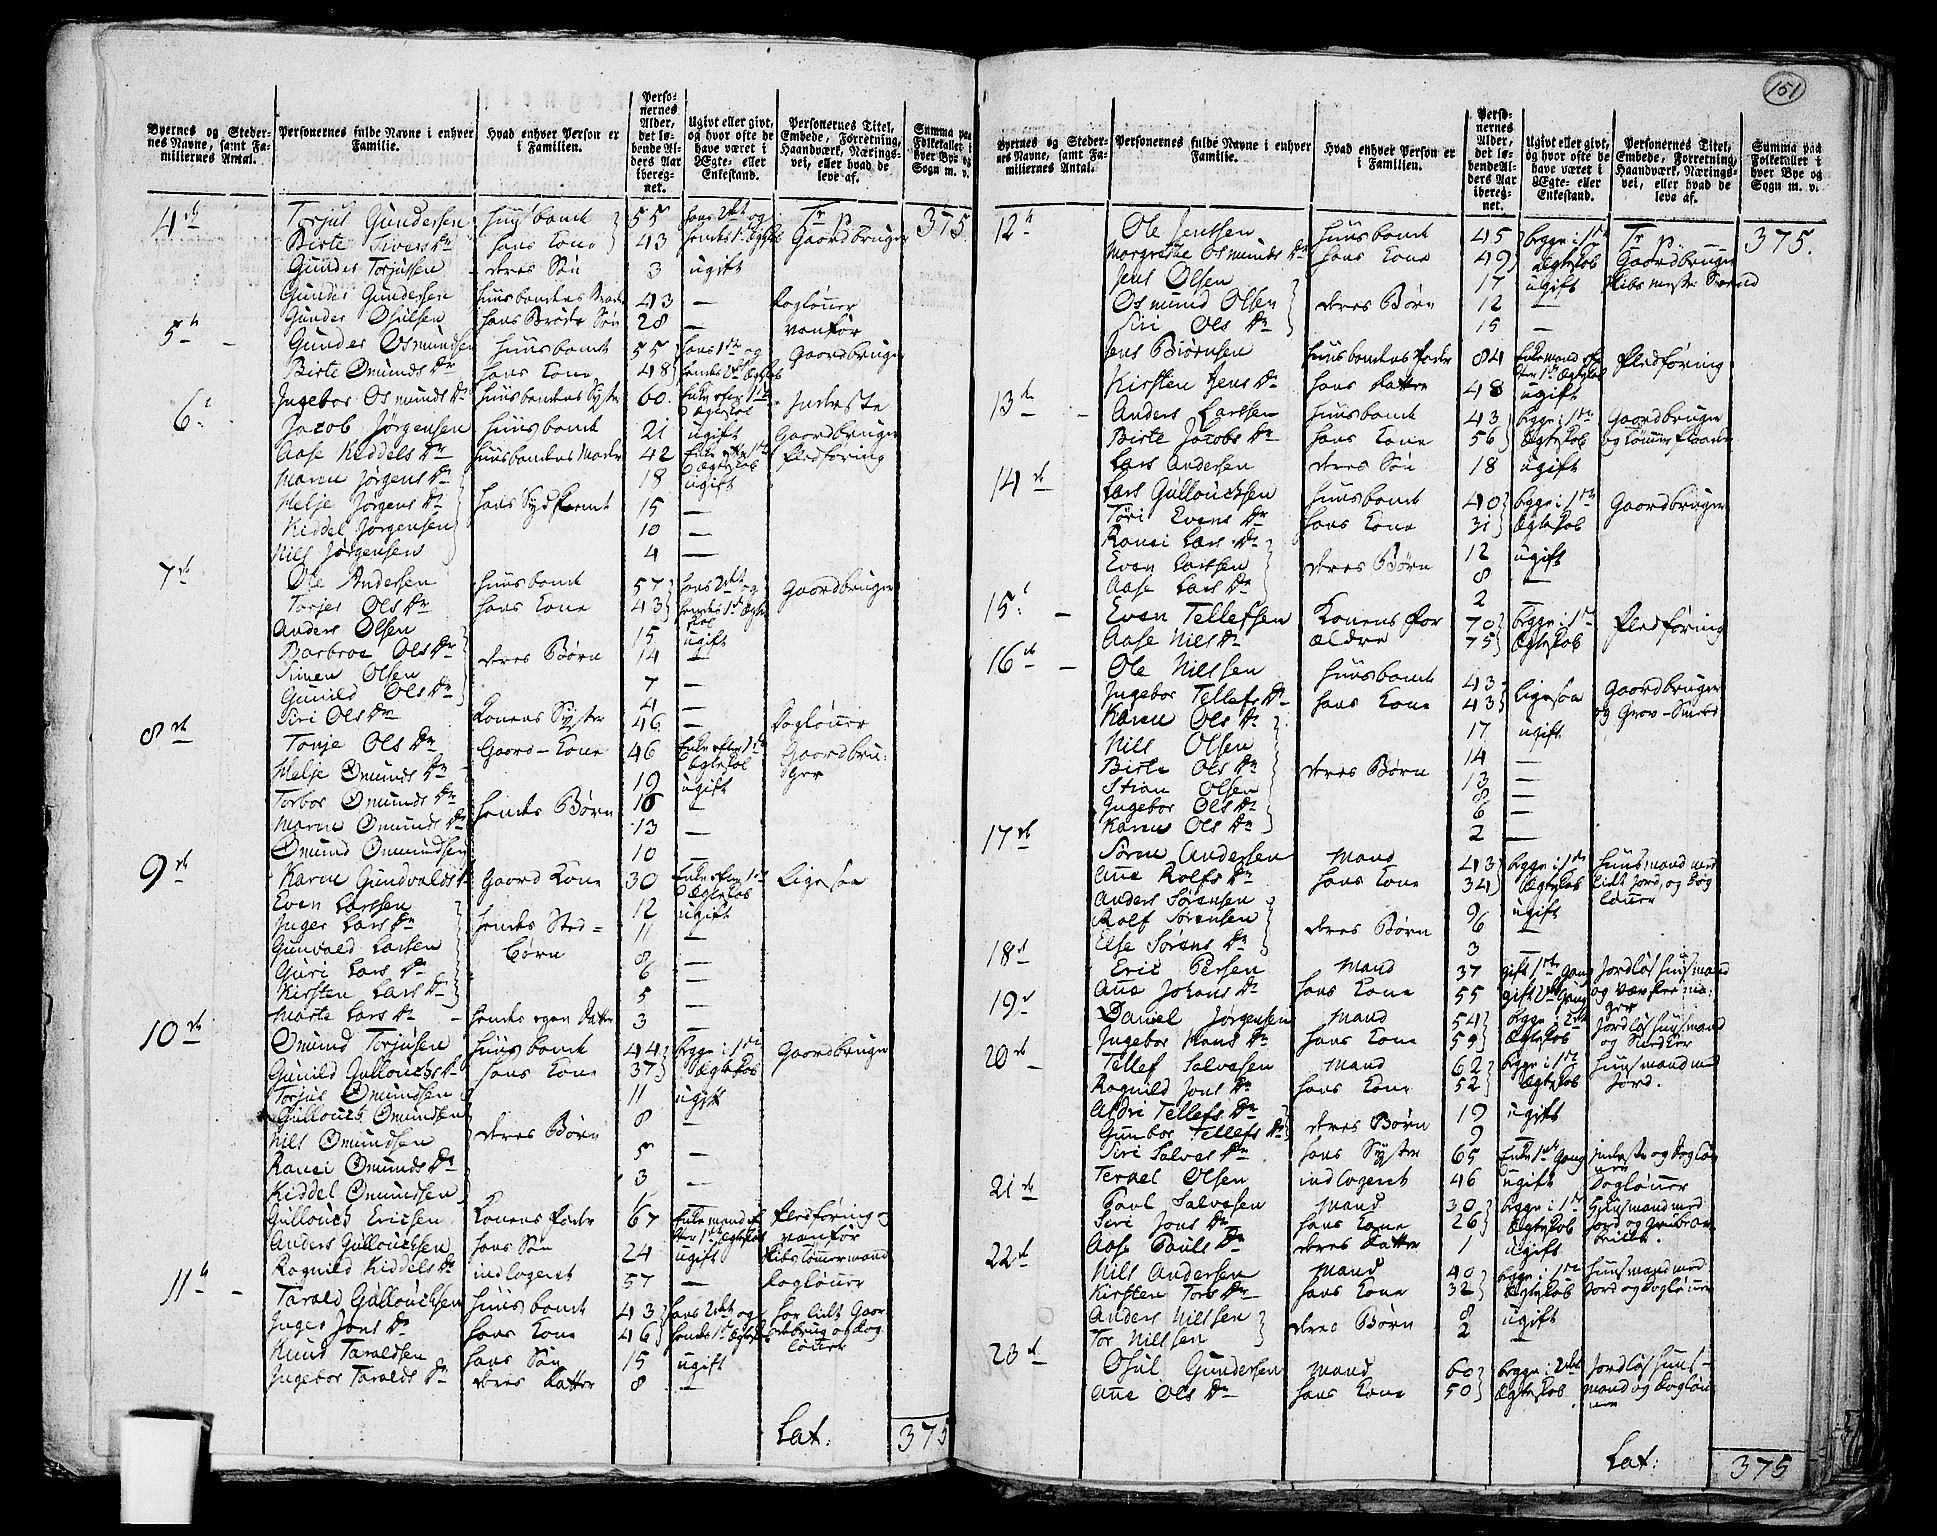 151
Byernes og Steder-
nes Navne, samt Fa-
miliernes Antal.
Personernes fulde Navne i enhver
Familie.
Hvad enhver Person er
i Familien.
Perso-
nernes
Alder,
det lø-
bende Al-
ders Aar
iberegn-
net.
Ugivt eller givt,
og hvor ofte de
have været i
Ægte- eller
Enkestand.
Personernes Titel,
Embede, Forretning,
Haandværk, Nærings-
vei, eller hvad de
leve af.
Summa paa
Folketallet i
hver Bye og
Sogn m. v.
4de Torjul Gundersen Huusbond 55 hans 2det og Tr P 375
Birte Sivers Dr hans Kone 43 hendes 1te Gaardbruger
Gunder Torjusen deres Søn 3 ugift
Gunder Gundersen Huusbondens Broder 43 — Dagløner
Gunder Osulsen hans Broder Søn 28 — vanfør
5te Gunder Osmundsen Huusbond 55 hans 1te og Gaardbruger
Birte Omunds Dr hans Kone 48 hendes 2det Ægteskab
Ingebor Osmunds Dr Huusbondens Syster 60 Enke efter 1te Ægteskab Inderste
6te Jacob Jørgensen Huusbond 21 ugift Gaardbruger
Aase Kiddels Dr Huusbondens Moder 42 Enke efter 1te Ægteskab Fledføring
Maren Jørgens Dr 18 ugift
Helje Jørgens Dr hans Sydskend 15 —
Kiddel Jørgensen 10 —
Nils Jørgensen 4 —
7de Ole Andersen Huusbond 57 hans 2det og Gaardbruger
Torjer Ols Dr hans Kone 43 hendes 1te Ægteskab
Anders Olsen 15 ugift
Barbroe Ols Dr deres Børn 14 —
Simen Olsen 7 —
Gunild Ols Dr 4 —
Siri Ols Dr Konens Syster 46 — Dagløner
8de Tonje Ols Dr Gaard-Kone 46 Enke efter 1te Ægteskab Gaardbruger
Helje Omunds Dr 19 ugift
Torbor Omunds Dr hendes Børn 16 —
Maren Omunds Dr 13 —
Omund Omundsen 10 —
9de Karen Gundvalds Dr Gaard Kone 30 Enke efter 1te Ægteskab Ligesaa
Even Larsen 12 ugift
Inger Lars Dr hendes Sted- 11 —
Gunvald Larsen børn 8 —
Guri Lars Dr 6 —
Kirsten Lars Dr 5 —
Marte Lars Dr hendes egen Datter 3 —
10de Omund Torjusen Huusbond 44 begge i 1te Gaardbruger
Gunild Gullouchs Dr hans Kone 37 Ægteskab
Torjus Omundsen 11 ugift
Gullouch Omundsen 8 —
Nils Omundsen deres Børn 5 —
Ranei Omunds Dr 3 —
Kiddel Omundsen
Gullouch Ericsen Konens Fader 67 Enkemand efter 1te Ægteskab Fledføring og vanfør
Anders Gullouchsen hans Søn 24 ugift
Rognild Kiddels Dr indlogeret 57 — Dagløner
11te Tarald Gullouchsen Huusbond 43 hans 2det og har lidt Gaar-
Inger Jons Dr hans Kone 46 hendes 1te Ægteskab debrug og Dag
Knud Taraldsen hans Søn 15 ugift løner
Ingebor Taralds Dr deres Datter 8 —
Lat: 375
Byernes og Steder-
nes Navne, samt Fa-
miliernes Antal.
Personernes fulde Navne i enhver
Familie.
Hvad enhver Person er
i Familien.
Perso-
nernes
Alder,
det lø-
bende Al-
ders Aar
iberegn-
net.
Ugivt eller givt,
og hvor ofte de
have været i
Ægte- eller
Enkestand.
Personernes Titel,
Embede, Forretning,
Haandværk, Nærings-
vei, eller hvad de
leve af.
Summa paa
Folketallet i
hver Bye og
Sogn m. v.
12te Ole Jensen Huusbond 45 begge i 1te Tr P 375.
Margrethe Osmunds Dr hans Kone 49 Ægteskab Gaardbruger
Jens Olsen 17 ugift
Osmund Olsen deres Børn 12 —
Siri Ols Dr 15 —
Jens Biørnsen Huusbondens Fader 84 Enkemand efter 1te Ægteskab Fledføring
Kirsten Jens Dr hans Datter 48 ugift
13de Anders Larsen Huusbond 43 begge i 1te Gaardbruger
Birte Jacobs Dr hans Kone 56 Ægteskab og
Lars Andersen deres Søn 18 ugift
14de Lars Gullouchsen Huusbond 40 begge i 1te Gaardbruger
Tøri Evens Dr hans Kone 31 Ægteskab
Ranei Lars Dr 12 ugift
Even Larsen deres Børn 8 —
Aase Lars Dr 2
15de Even Tellefsen Konens For 70 begge i 1te Fledføring
Aase Nils Dr ældre 75 Ægteskab
16de Ole Nilssen Huusbond 43 Ligesaa Gaardbruger
Ingebor Tellefs Dr hans Kone 43 og Grov-Smed
Karen Ols Dr 17 ugift
Nils Olsen 14 —
Birte Ols Dr deres Børn 13 —
Stian Olsen 8 —
Ingebor Ols Dr 6 —
Karen Ols Dr 2 —
17de Søren Andersen Mand 43 begge i 1te Huusmand med
Ane Rolfs Dr hans Kone 34 Ægteskab lidt Jord, og Dag
Anders Sørensen 9 ugift løner
Rolf Sørensen deres Børn 6 —
Else Sørens Dr 3 —
18de Eric Persen Mand 37 gift 1te Gang Jordløs Huusmand
Ane Johans Dr hans Kone 55 gift 2den Gang og
19de Daniel Jørgensen Mand 54 begge i 2det Jordløs Huusmand
Ingebor Hans Dr hans Kone 59 Ægteskab og Snedker
20de Tellef Salvesen Mand 62 begge i 1te Huusmand med
Rognild Jons Dr hans Kone 52 Ægteskab Jord.
Aldri Tellefs Dr deres Børn 19 ugift
Gunbor Tellefs Dr 9 —
Siri Salves Dr hans Syster 65 Enke 1te Gang Inderste og Dagløner
Terkel Olsen indlogeret 46 ugift Dagløner
21de Povl Salvesen Mand 30 begge i 1te Huusmand med
Siri Jons Dr hans Kone 26 Ægteskab Jord, og
Aase Pauls Dr deres Datter 1 ugift
22de Nils Andersen Mand 40 begge i 1te Huusmand med
Kirsten Tors Dr hans Kone 32 Ægteskab Jord og Dagløner
Anders Nilssen deres Børn 8 ugift
Tor Nilssen 2 —
23de Osul Gundersen Mand 60 begge i 2det Jordløs Huus-
Ane Ols Dr hans Kone 50 Ægteskab mand og Dagløner
Lat: 375